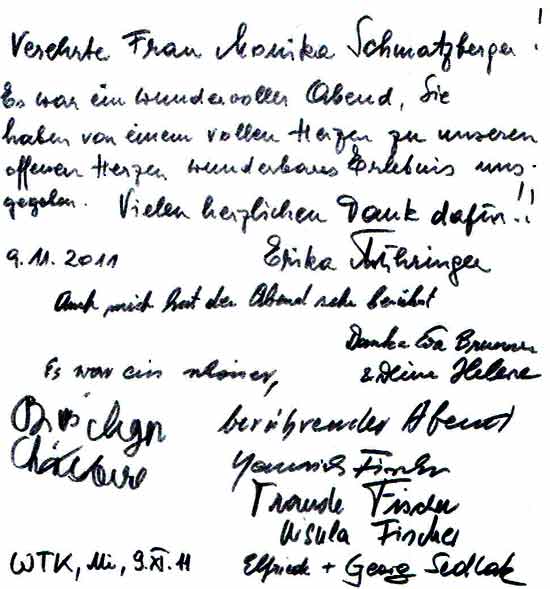 Verehrte Frau Monika Schmatzberger!
Es war ein wundervoller Abend, Sie
haben von einem vollen Herzen zu unseren
offenen Herzen wunderbares Erlebnis uns
gegeben. Vielen herzlichen Dank dafür!!
9.11.2011 Erika Führinger
Auch mich hat der Abend sehr berührt
Danke Eva Brunner
& Deine Helene
Es war ein schöner,
berührender Abend
Fischer
Traude Fischer
Ursula Fischer
WTK, Mi, 9.XI.11 Elfriede + Georg Sedlak